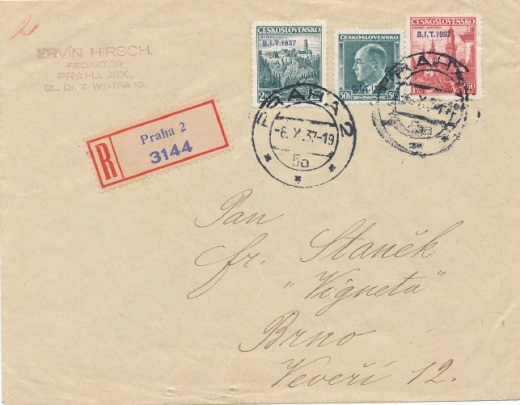 2
ERVÍN HIRSCH,
REDAKTOR
PRAHA XIX.
UL. Dr. Z. WINTRA 10.
R
Praha 2
3144
ČESKOSLOVENSKO
B.I.T. 1937
ČESKOSLOVENSKO
50h
ČESKOSLOVENSKO
B.I.T. 1937
PRAHA 2
-6.X.37-19
5a
PRAHA
Pan
fr. Staněk
"Vigneta"
Brno
Veveří 12.